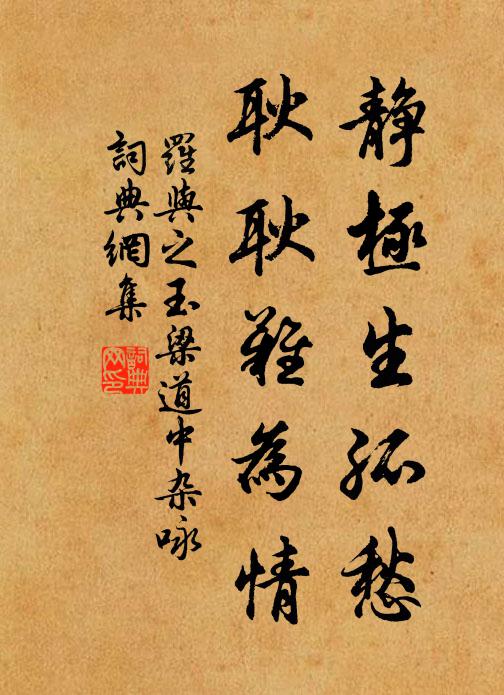 静極生孤愁
耿耿難為情
羅與之玉梁道中杂咏
詞典網集
詞典網印